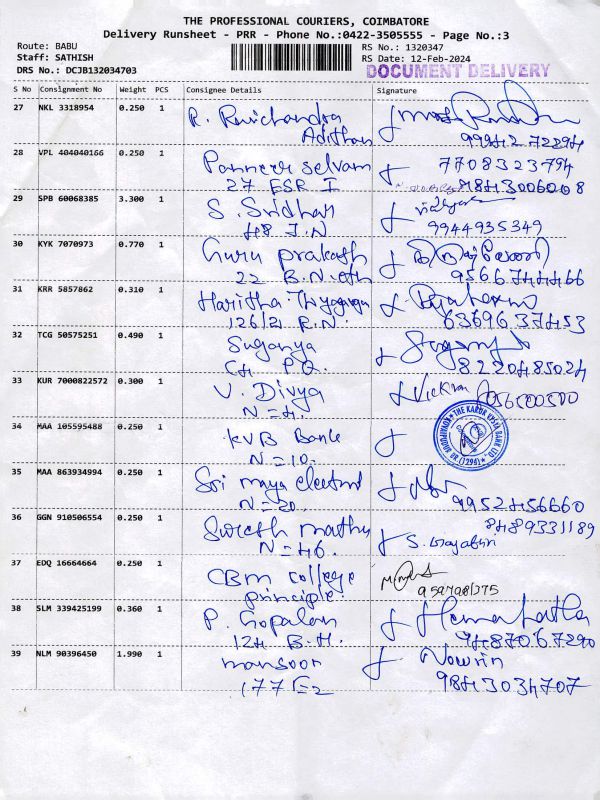 THE PROFESSIONAL COURIERS, COIMBATORE
Delivery Runsheet - PRR - Phone No.:0422-3505555 - Page No.:3
Route: BABU RS No.: 1320347
Staff: SATHISH RS Date: 12-Feb-2024
DRS No.: DCJB132034703 DOCUMENT DELIVERY
S No Consignment No Weight PCS Consignee Details Signature
27 NKL 3318954 0.250 1 R. Ravichandra
Adithan 99942 72294
28 VPL 404040166 0.250 1 Panneer Selvam 7708323794
27 ESR I 9843006008
29 SPB 60068385 3.300 1 S. Sridhar
48 J.N 9944935349
30 KYK 7070973 0.770 1 Guru prakash
22 B.N. 9566744466
31 KRR 5857862 0.310 1 Haritha Thyagaraja
126/21 R.N. 6369637453
32 TCG 50575251 0.490 1 Suganya
C4 P.Q. 8220485024
33 KUR 7000822572 0.300 1 V. Divya Vickram
N=4.
34 MAA 105595488 0.250 1 KVB Bank THE KARUR VYSYA BANK LTD (1294)
N=10.
35 MAA 863934994 0.250 1 Sri maya electricl
N=20. 9952456660
36 GGN 910506554 0.250 1 Suresh mathu 8489331189
N=46. S.
37 EDQ 16664664 0.250 1 CBM College
principle.
38 SLM 339425199 0.360 1 P. Gopalan Hemalatha
124 B.H. 9487067290
39 NLM 90396450 1.990 1 mansoor Nowrin
177 E2 9843034707